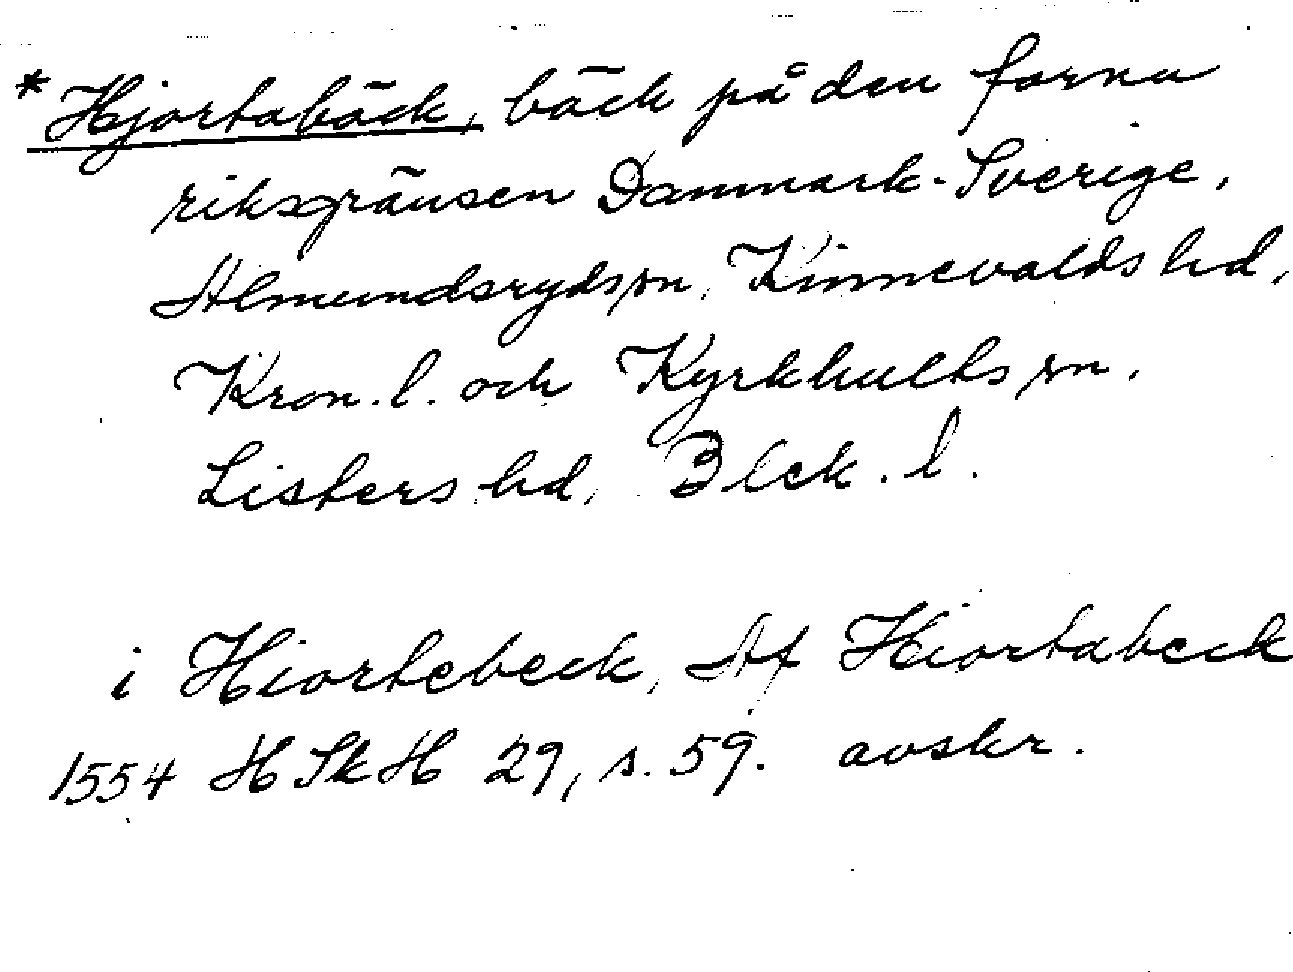 *Hjortabäck, bäck på den forna
riksgränsen Danmark-Sverige,
Almundsryds sn, Kinnevalds hd,
Kron. l. och Kyrkhults sn,
Listers hd, Blek. l.
i Hiortebeck, Af Hiortabeck
1554 HSkH 29, s. 59. avskr.